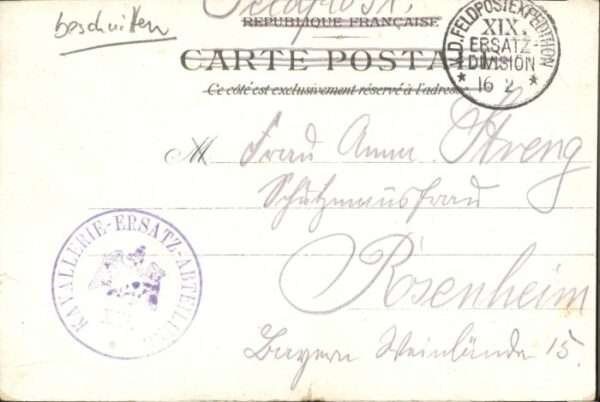 beschnitten
Feldpost.
RÉPUBLIQUE FRANÇAISE
CARTE POSTALE
Ce côté est exclusivement réservé à l'adresse
K.D. FELDPOSTEXPEDITION
XIX.
ERSATZ-
DIVISION
* 16 2 *
M Frau Anna Streng
Schutzmannsfrau
Rosenheim
Bayern Weinlände 15.
KAVALLERIE-ERSATZ-ABTEILUNG